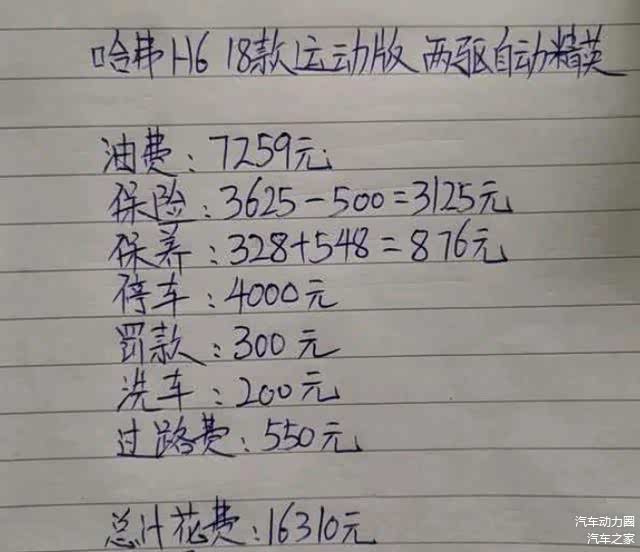 哈弗H6 18款运动版 两驱自动精英
油费：7259元
保险：3625-500=3125元
保养：328+548=876元
停车：4000元
罚款：300元
洗车：200元
过路费：550元
总计花费：16310元
汽车动力圈
汽车之家